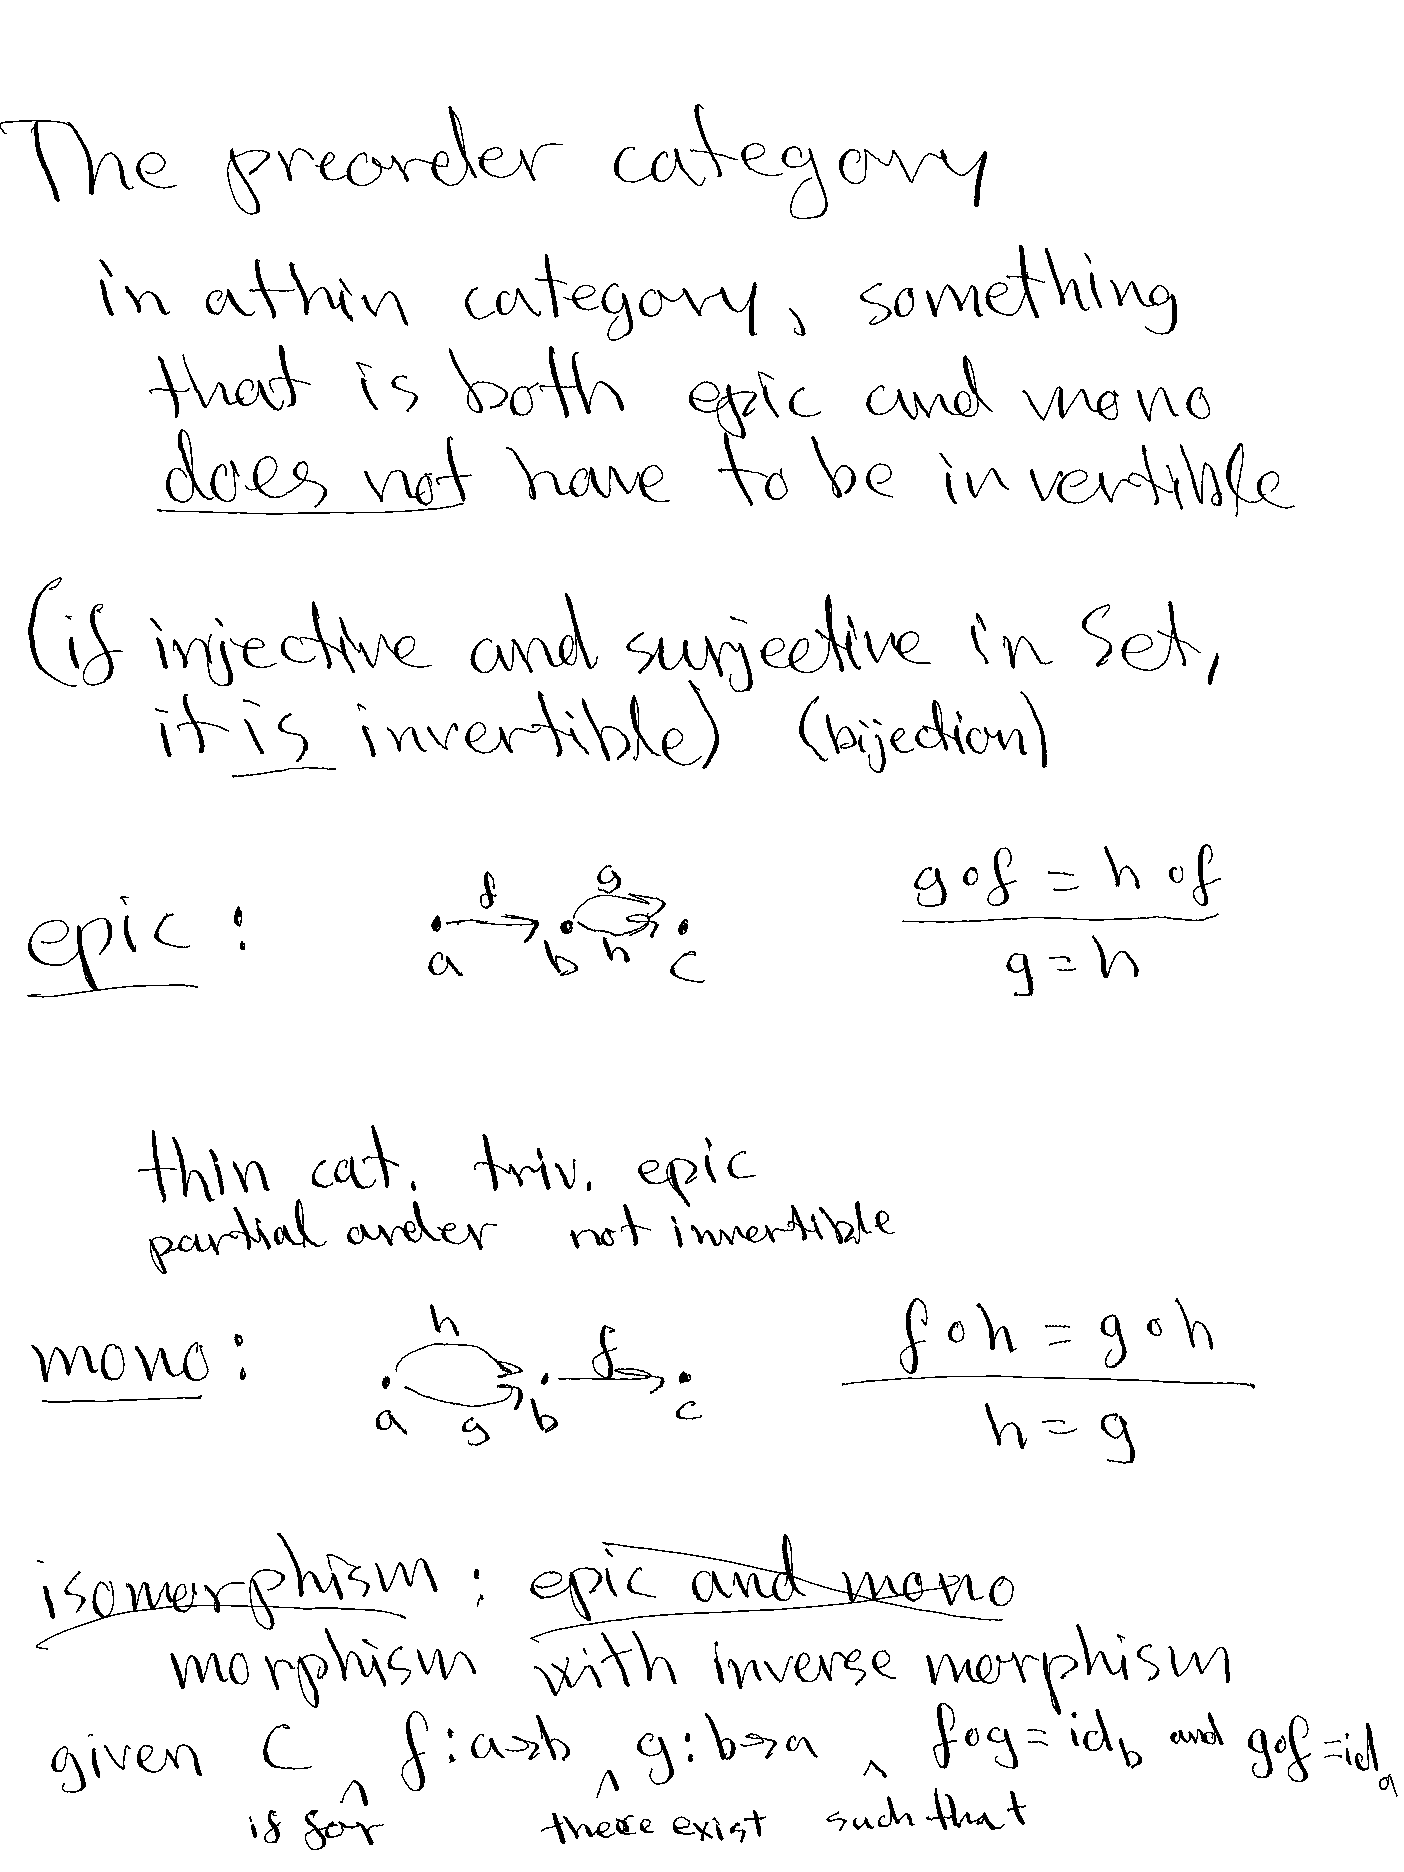 The preorder category
in a thin category, something
that is both epic and mono
does not have to be invertible
(if injective and surjective in Set,
it is invertible) (bijection)
epic: f g a b h c g∘f = h∘f
g=h
thin cat. triv. epic
partial order not invertible
mono: h f a g b c f∘h = g∘h
h=g
isomorphism: epic and mono
morphism with inverse morphism
given C f:a→b g:b→a f∘g=id_b and g∘f=id_a
^ is for ^ there exist ^ such that